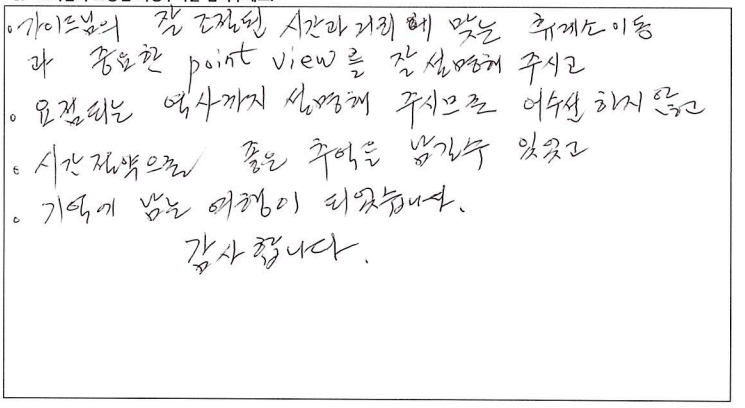 ◦ 가이드님의 잘 조절된 시간과 거리에 맞는 휴게소이동
과 중요한 point view를 잘 설명해 주시고
◦ 요점되는 역사까지 설명해 주시므로 어수선 하지 않고
◦ 시간절약으로 좋은 추억을 남길수 있었고
◦ 기억에 남는 여행이 되었습니다.
감사합니다.